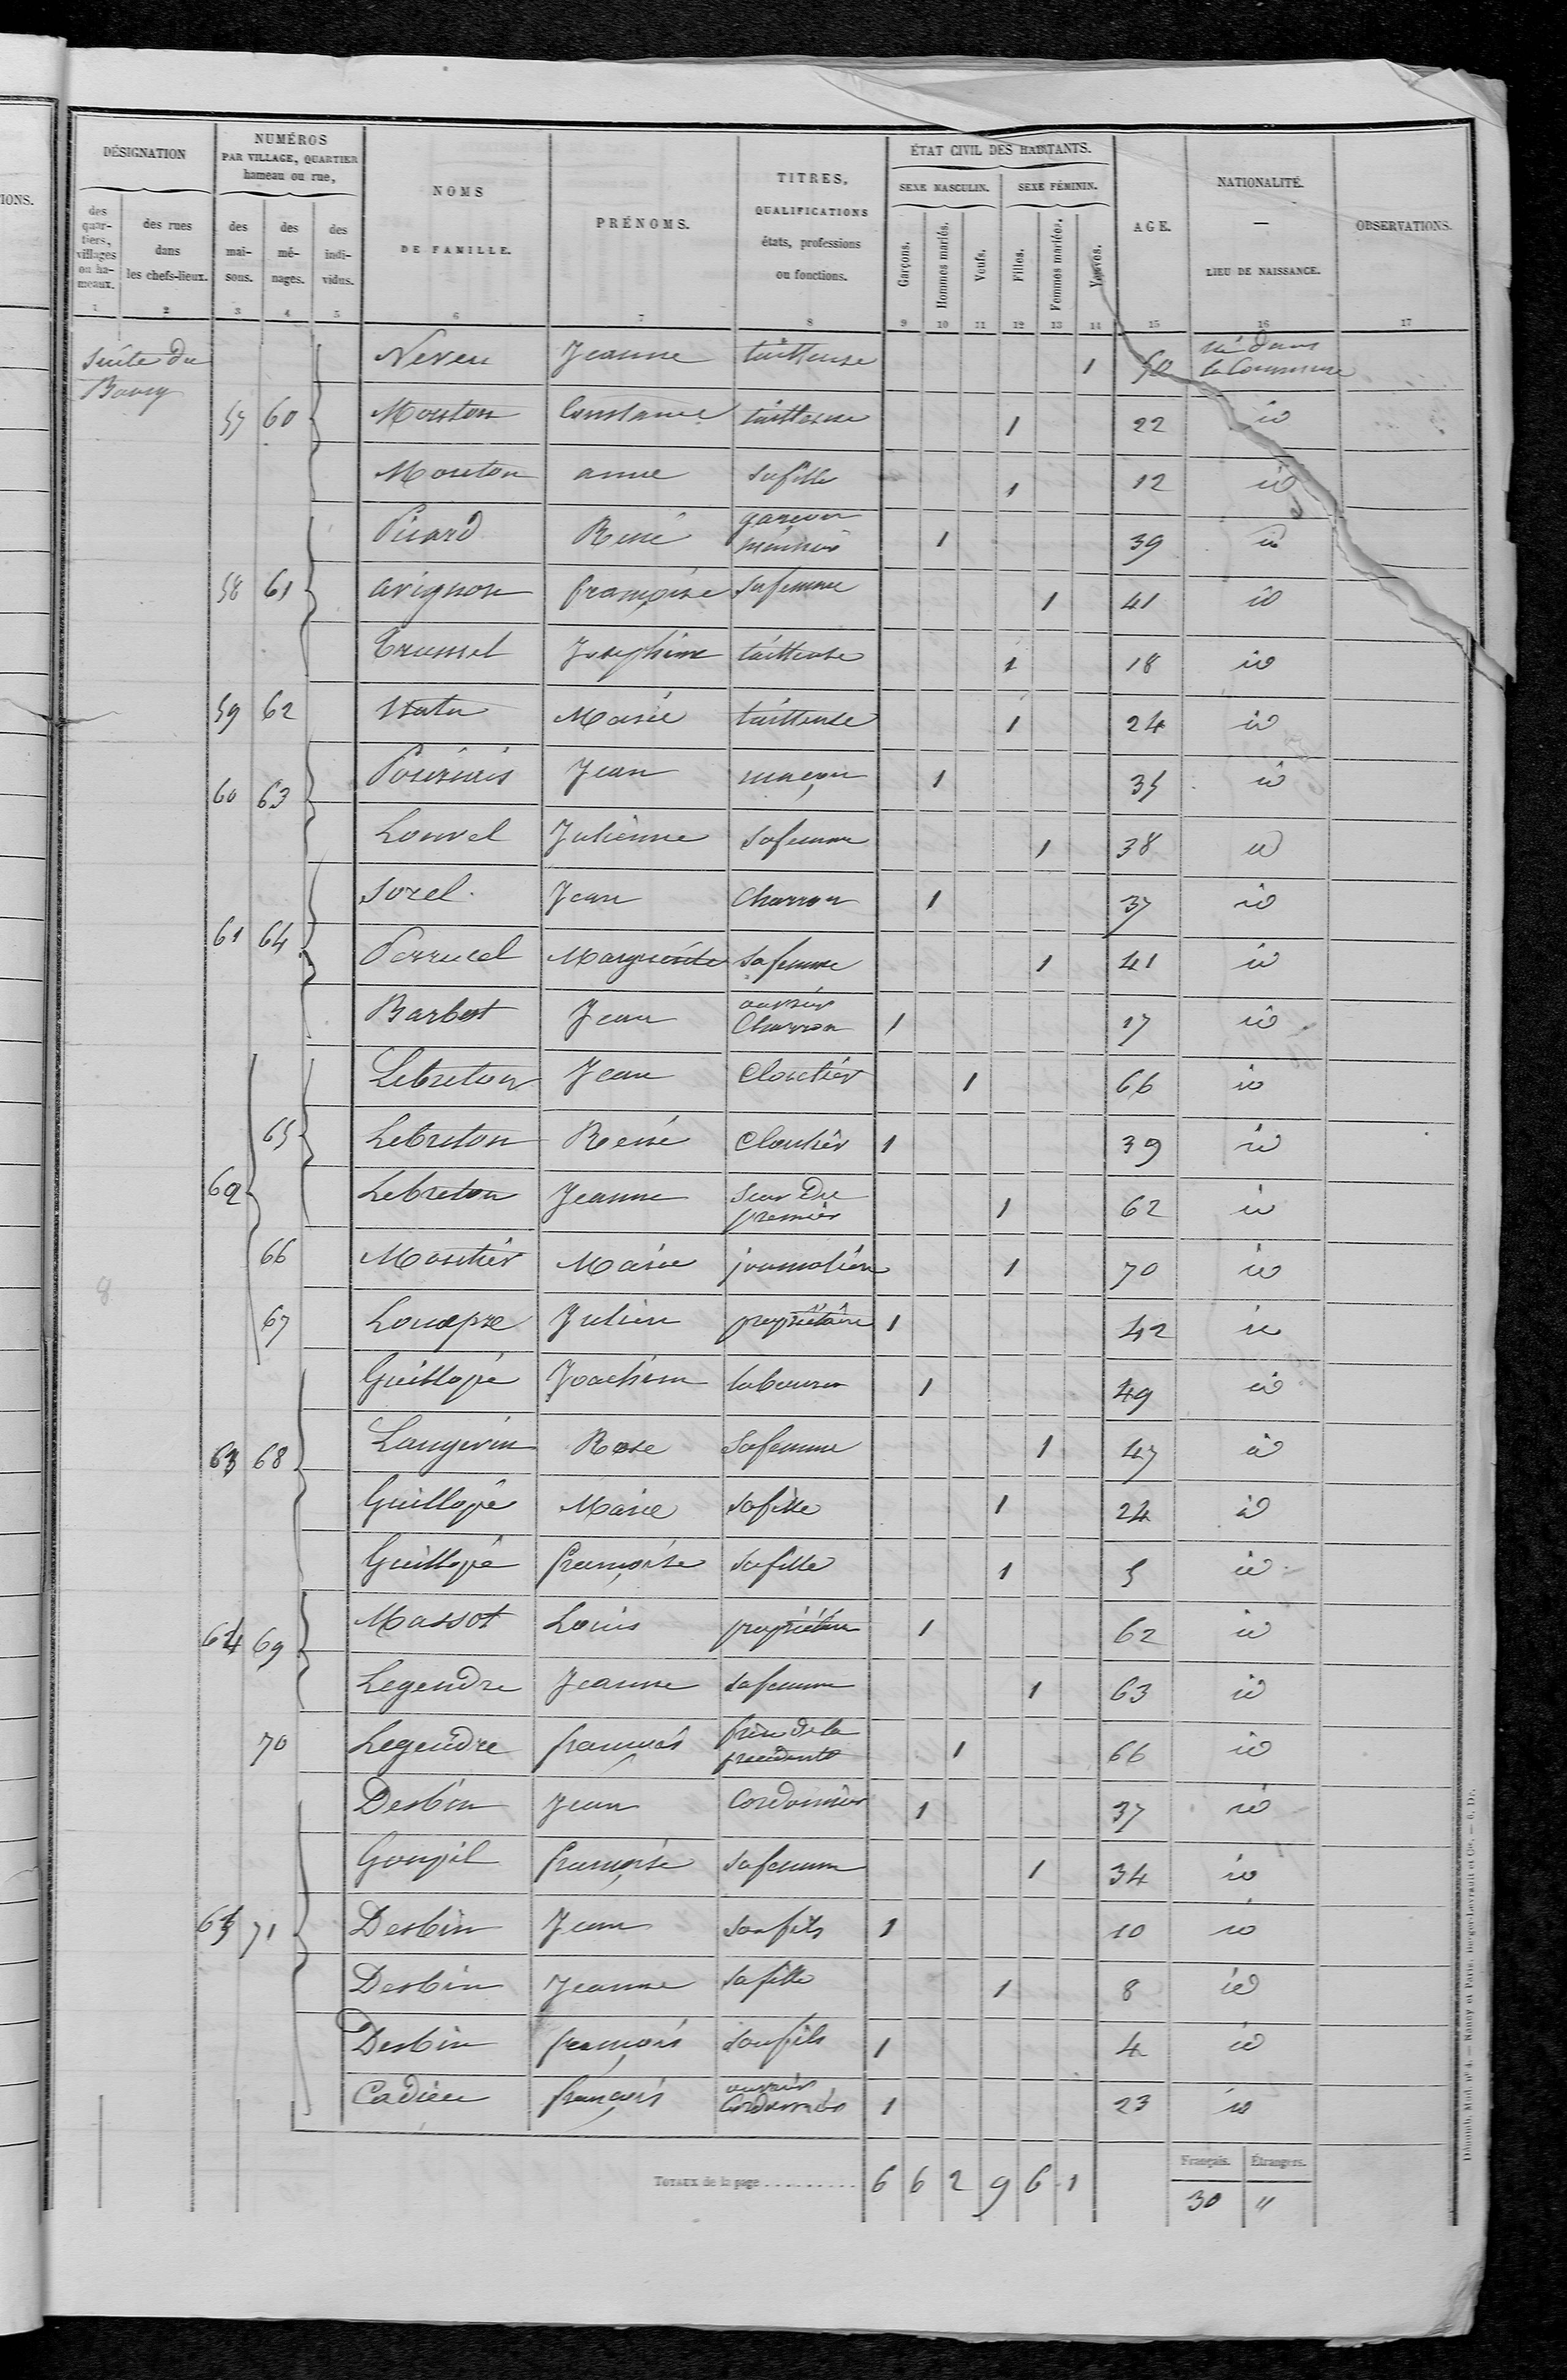 IONS.
DÉSIGNATION
NUMÉROS
PAR VILLAGE, QUARTIER
hameau ou rue,
NOMS
DE FAMILLE.
PRÉNOMS.
TITRES,
QUALIFICATIONS
états, professions
ou fonctions.
ÉTAT CIVIL DES HABITANTS.
SEXE MASCULIN. SEXE FÉMININ.
AGE.
NATIONALITÉ.
—
LIEU DE NAISSANCE.
OBSERVATIONS.
des quar-tiers, villages ou ha-meaux.
des rues dans les chefs-lieux.
des mai-sons.
des mé-nages.
des indi-vidus.
Garçons. Hommes mariés. Veufs. Filles. Femmes mariées. Veuves.
1 2 3 4 5 6 7 8 9 10 11 12 13 14 15 16 17
Suite du Bourg Neveu Jeanne tailleuse 1 50 né dans la Commune
57 60 Mouton Constance tailleuse 1 22 id
Mouton anne sa fille 1 12 id
Picard René garçon meunier 1 39 id
58 61 avignon françoise sa femme 1 41 id
Trumel Josephine tailleuse 1 18 id
59 62 Marie tailleuse 1 24 id
60 63 Jean maçon 1 35 id
Louvel Julienne sa femme 1 38 id
Sorel Jean Charron 1 37 id
61 64 Perrucel Marguerite sa femme 1 41 id
Barbot Jean ouvrier Charron 1 17 id
Lebreton Jean Cloutier 1 66 id
65 Lebreton René Cloutier 1 39 id
62 Lebreton Jeanne Seur du premier 1 62 id
66 Moutier Marie journalière 1 70 id
67 Louapre Julien propriétaire 1 42 id
Guillopé Joachim laboureur 1 49 id
63 68 Langevin Rose sa femme 1 47 id
Guillopé Marie sa fille 1 24 id
Guillopé françoise sa fille 1 5 id
64 69 Massot Louis propriétaire 1 62 id
Legendre Jeanne sa femme 1 63 id
70 Legendre françois frère de la precedente 1 66 id
Desbin Jean Cordonnier 1 37 id
Goupil françoise sa femme 1 34 id
65 71 Desbin Jean son fils 1 10 id
Desbin Jeanne sa fille 1 8 id
Desbin françois son fils 1 4 id
Cadieu françois ouvrier Cordonnier 1 23 id
TOTAUX de la page 6 6 2 9 6 1
Français. Étrangers.
30 "
8